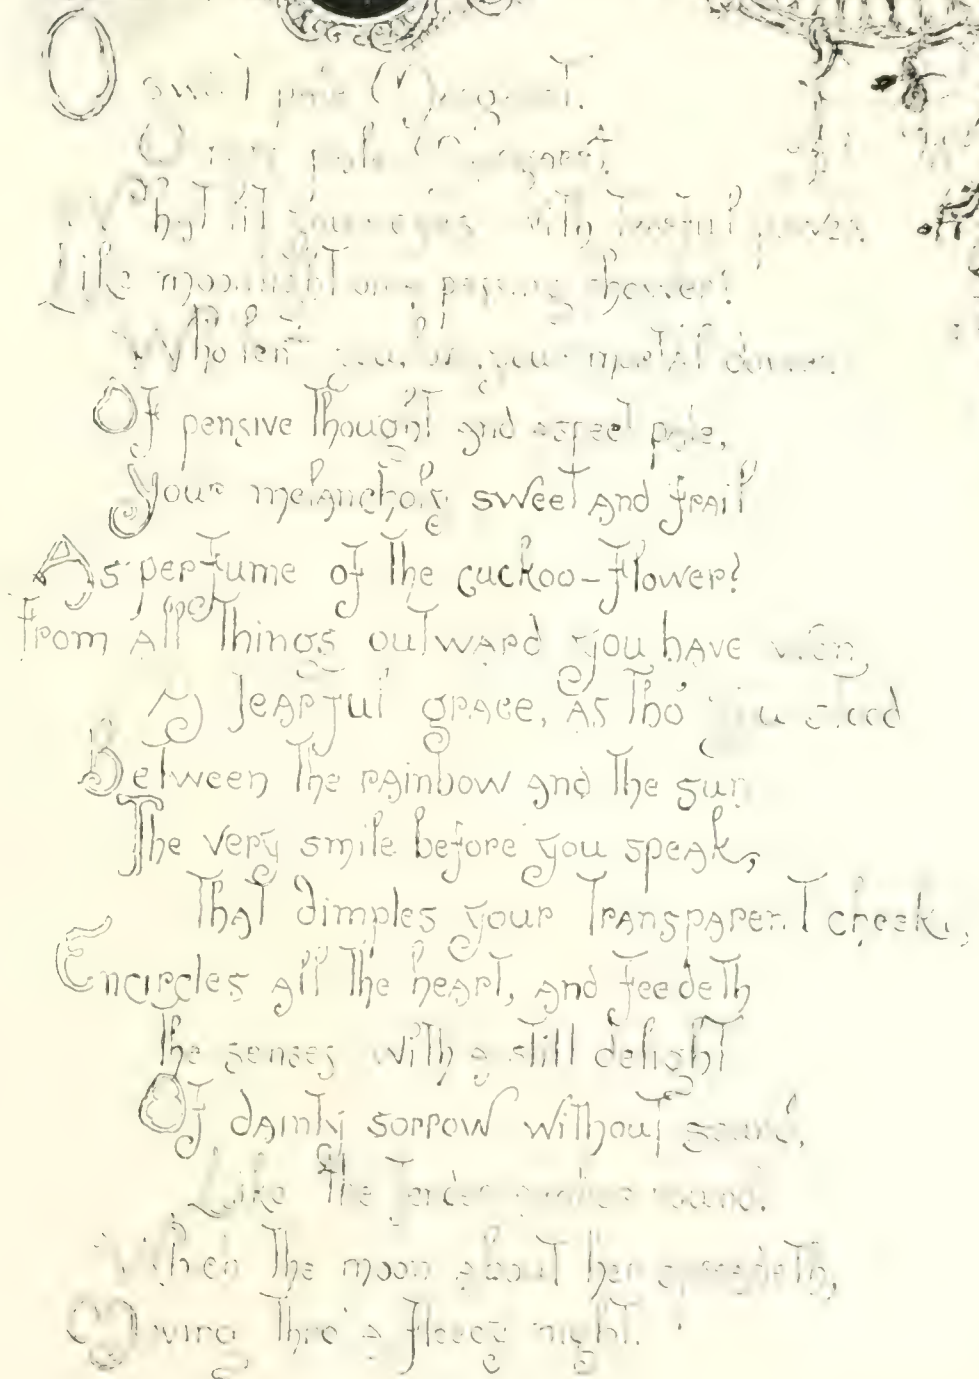 O sweet pale Margaret,
O rare pale Margaret,
What lit your eyes with tearful power,
Like moonlight on a shower?
Who lent you, love, your mortal dower
Of pensive thought and aspect pale,
Your melancholy sweet and frail
As perfume of the cuckoo-flower?
From all things outward you have won
A tearful grace, as tho' you stood
Between the rainbow and the sun
The very smile before you speak,
That dimples your transparent cheek,
Encircles all the heart, and feedeth
The senses with a still delight
Of dainty sorrow without sound,
Like the tender amber round,
the moon about her spreadeth,
Moving thro' a fleecy night.